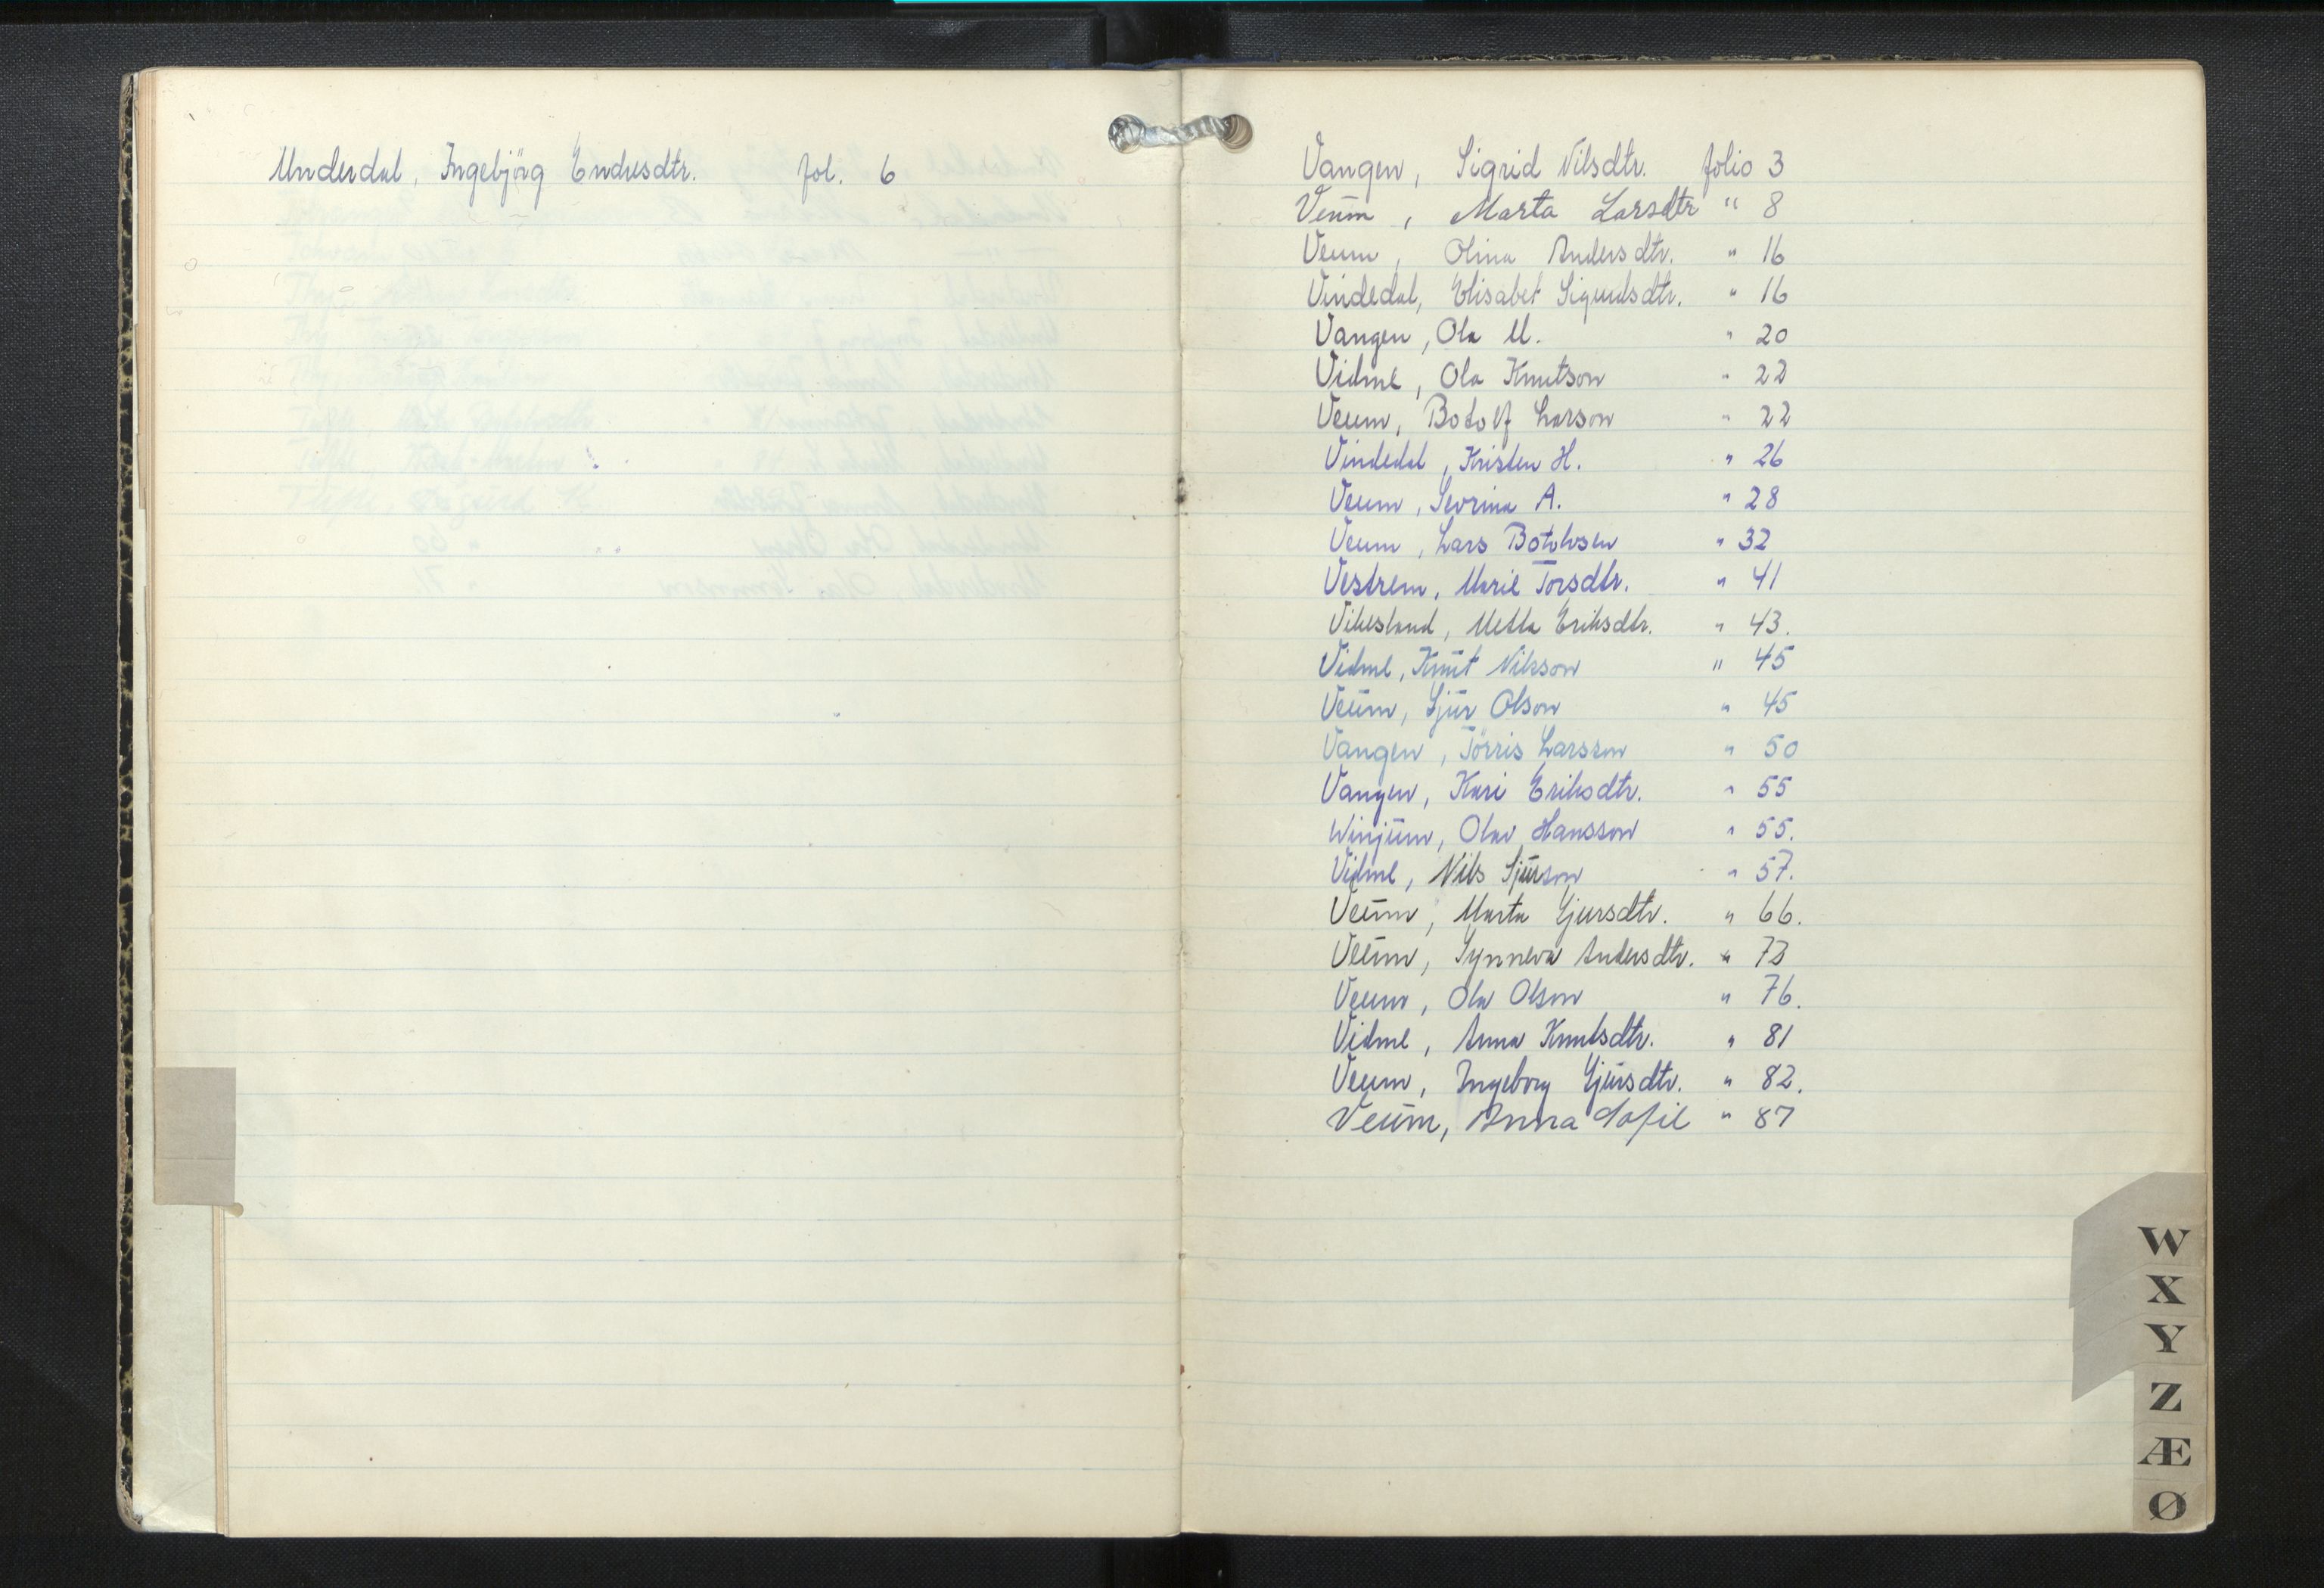 Underdal, Ingebjörg Endresdtr. fol. 6
Vangen, Sigrid Nilsdtr. folio 3
Veum, Marta Larsdtr " 8
Veum, Olina Andersdtr. " 16
Vindedal, Elisabet Sigurdsdtr. " 16
Vangen, Ola M. " 20
Vidme, Ola Knutson " 22
Veum, Botolf Larson " 22
Vindedal, Kristen H. " 26
Veum, Sevrina A. " 28
Veum, Lars Botolvsen " 32
Vestrem, Marie Torsdtr. " 41
Vikesland, Metta Eriksdtr. " 43.
Vidme, Knut Nilsson " 45
Veum, Sjur Olson " 45
Vangen, Törris Larsson " 50
Vangen, Kari Eriksdtr. " 55
Winjum, Olav Hansson " 55.
Vidme, Nils Sjurson " 57.
Veum, Marta Sjursdtr. " 66.
Veum, Synneva Andersdtr. " 73
Veum, Ola Olson " 76.
Vidme, Anna Knutsdtr. " 81
Veum, Ingeborg Sjursdtr. " 82.
Veum, Anna Sofie " 87
W
X
Y
Z
Æ
Ø